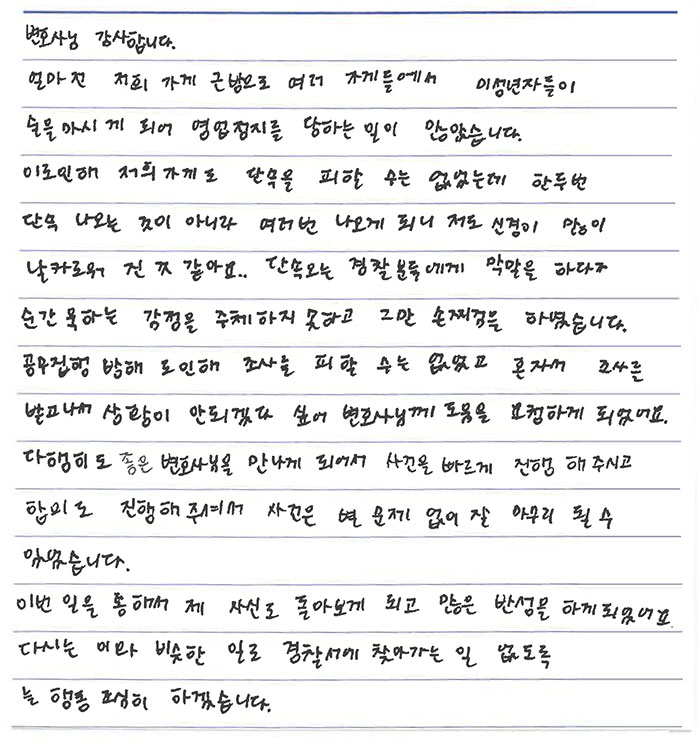 변호사님 감사합니다.
얼마전 저희 가게 근방으로 여러 가게들에서 미성년자들이
술을 마시게 되어 영업정지를 당하는 일이 많았습니다.
이로인해 저희가게도 단속을 피할 수는 없었는데 한두번
단속 나오는 것이 아니라 여러번 나오게 되니 저도 신경이 많이
날카로워 진 것 같아요.. 단속오는 경찰분들에게 막말을 하다가
순간 욱하는 감정을 주체하지 못하고 그만 손찌검을 하였습니다.
공무집행 방해 로인해 조사를 피할 수는 없었고 혼자서 조사를
받고나서 상황이 안되겠다 싶어 변호사님께 도움을 요청하게 되었어요.
다행히도 좋은 변호사님을 만나게 되어서 사건을 빠르게 진행 해주시고
합의도 진행해 주셔서 사건은 별 문제 없이 잘 마무리 될 수
있었습니다.
이번 일을 통해서 제 자신도 돌아보게 되고 많은 반성을 하게되었어요.
다시는 이와 비슷한 일로 경찰서에 찾아가는 일 없도록
늘 행동 조심히 하겠습니다.